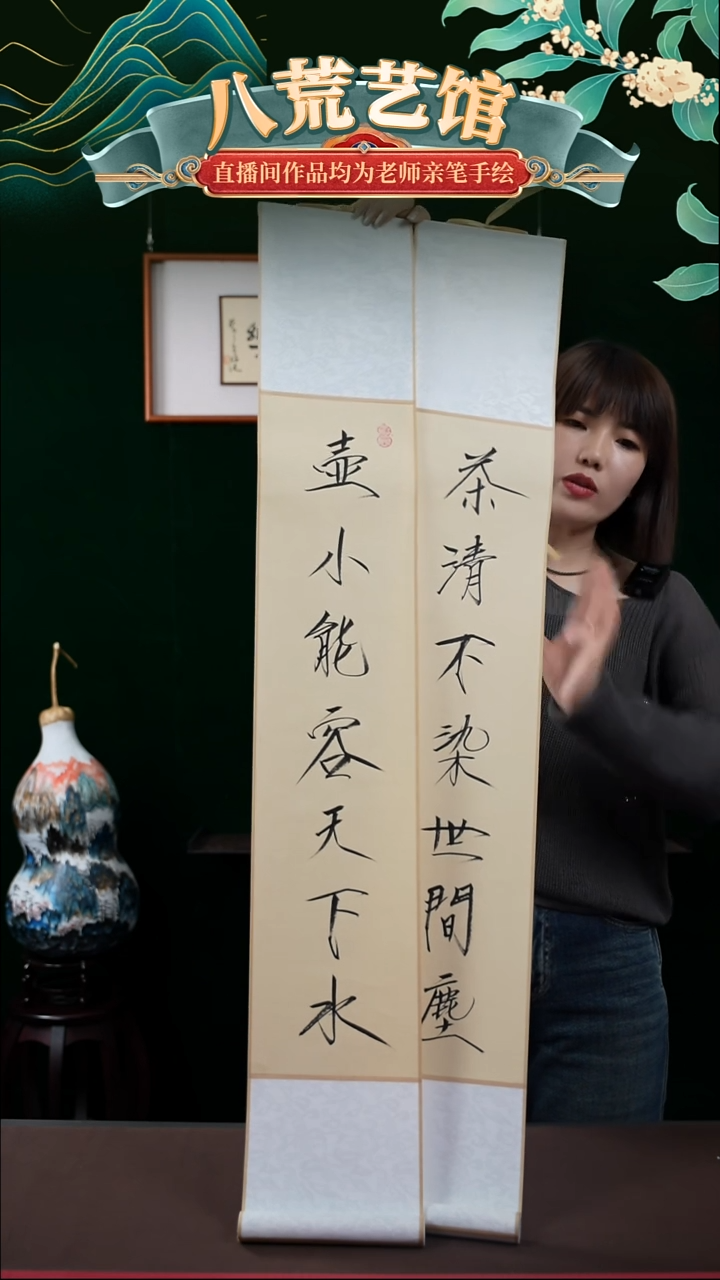 八荒艺馆
直播间作品均为老师亲笔手绘
茶清不染世間塵
壶小能容天下水